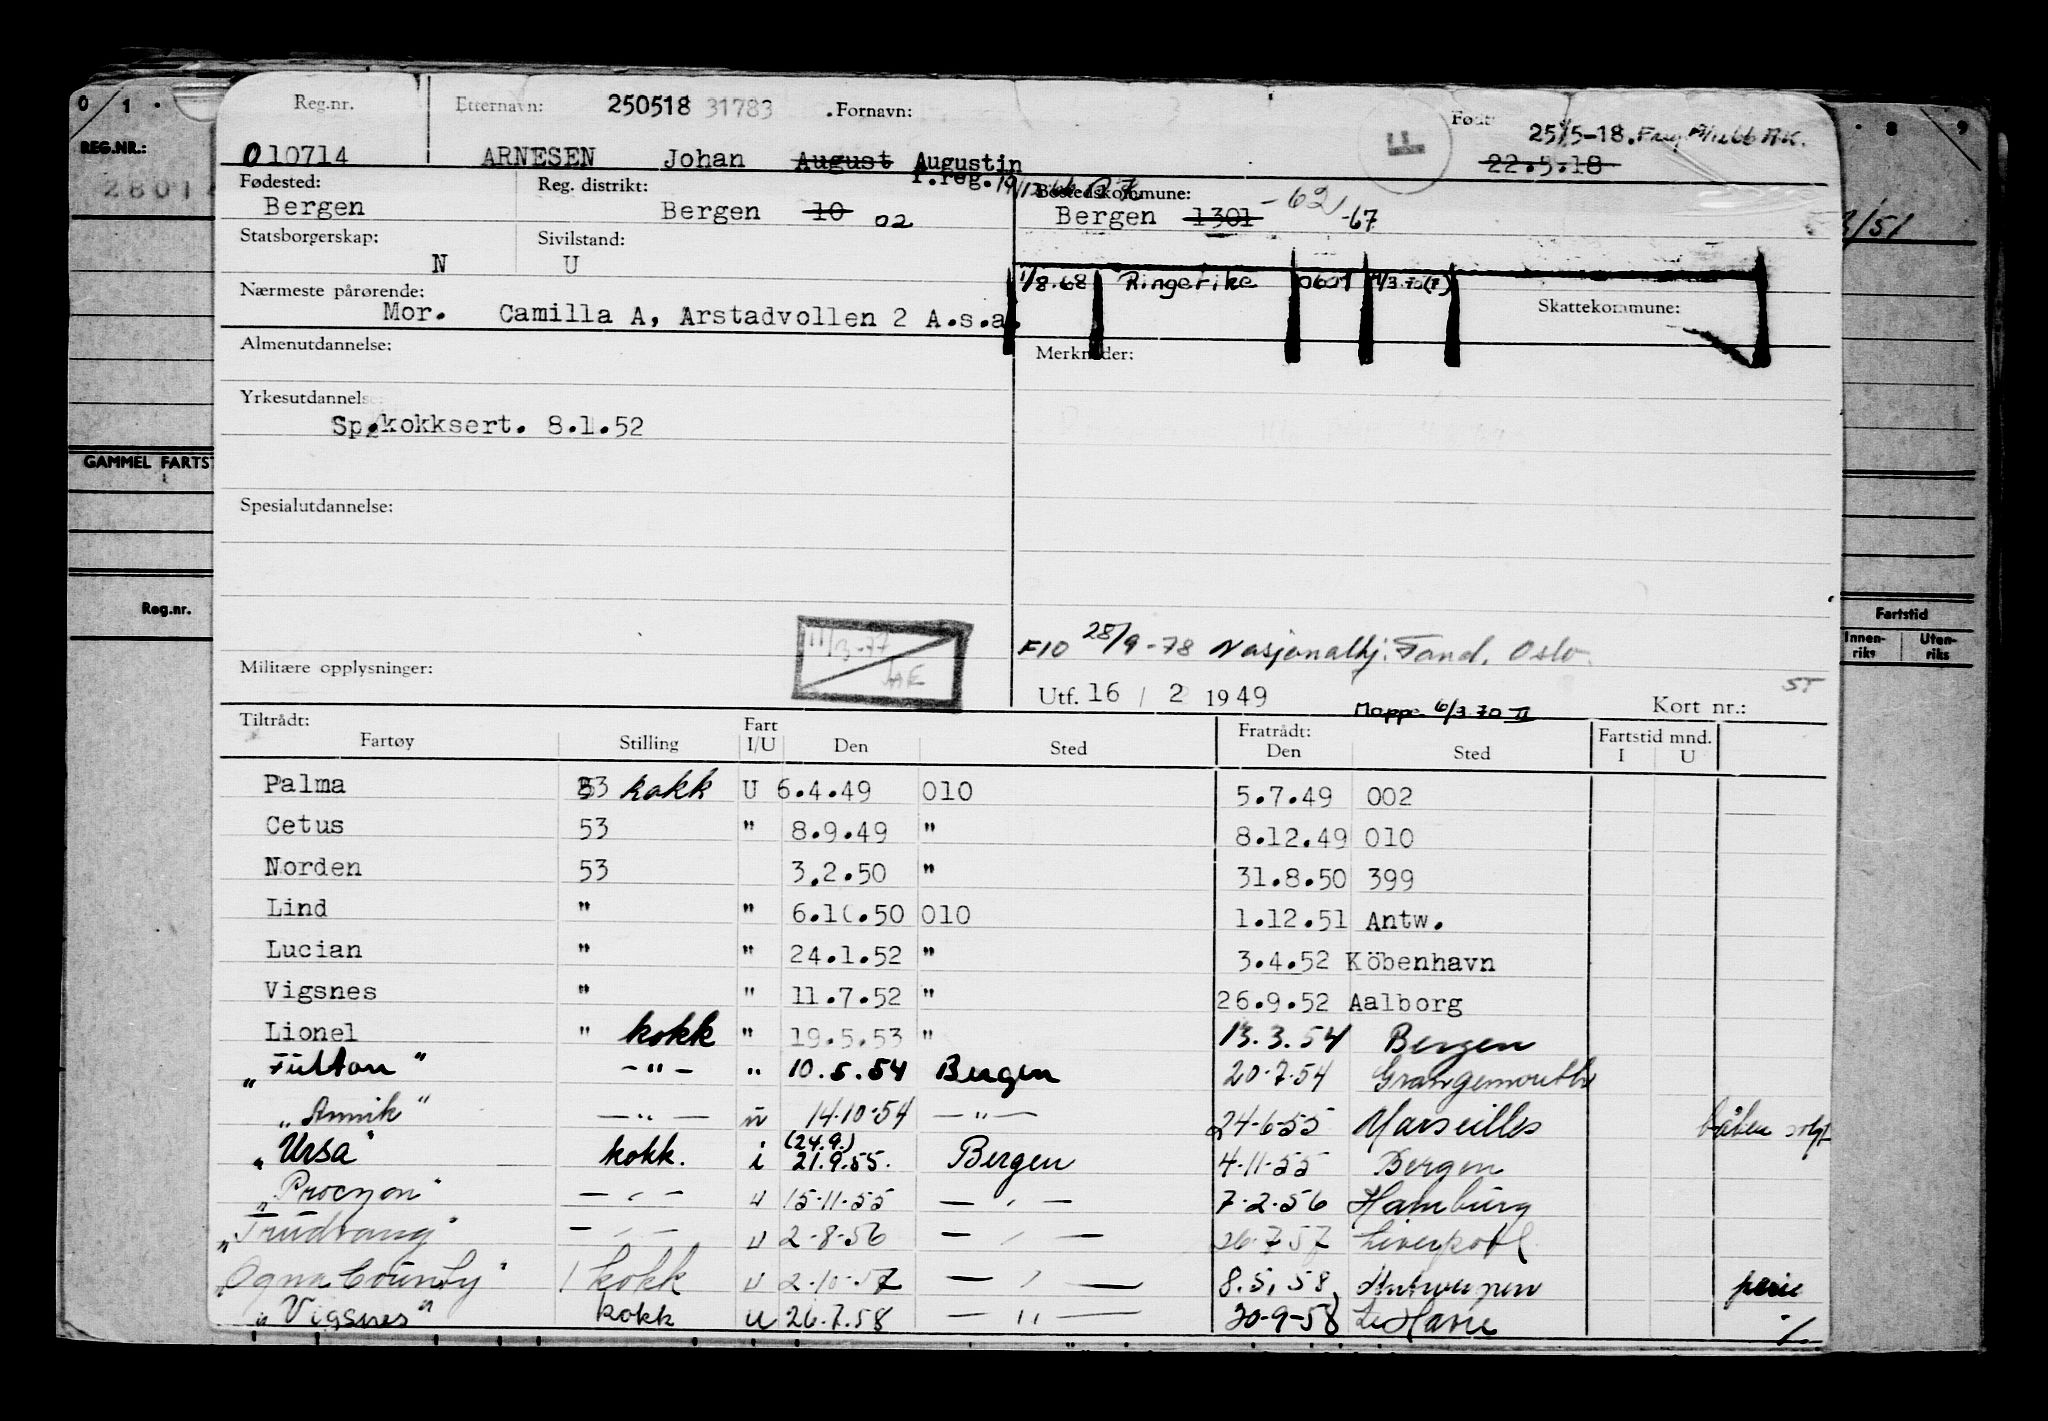 0 1 . . 8 9
REG.NR.:
Reg.nr. Etternavn: 250518 31783 .Fornavn: Født: 25/5-18.
010714 ARNESEN Johan August Augustin 22.5.18
F
f.reg.
Fødested: Reg. distrikt: Bostedskommune:
Bergen Bergen 10 02 Bergen 1301 -62 -67
Statsborgerskap: Sivilstand:
N U
1/8.68 Ringerike 0601
Nærmeste pårørende: Skattekommune:
Mor. Camilla A, Arstadvollen 2 A.s.a.
Almenutdannelse: Merknader:
Yrkesutdannelse:
Sp.kokksert. 8.1.52
GAMMEL FARTST
Spesialutdannelse:
Reg.nr. Fartstid
Innen-riks Uten-riks
11/3-77
F10 28/9-78 Nasjonalhj. Fond, Oslo.
Militære opplysninger:
Utf. 16 / 2 1949 Mappe 6/3 70 II Kort nr.:
Tiltrådt: Fart Fratrådt: Fartstid mnd.
Fartøy Stilling I/U Den Sted Den Sted I U
Palma 53 kokk U 6.4.49 010 5.7.49 002
Cetus 53 " 8.9.49 " 8.12.49 010
Norden 53 3.2.50 " 31.8.50 399
Lind " " 6.10.50 010 1.12.51 Antw.
Lucian " " 24.1.52 " 3.4.52 Köbenhavn
Vigsnes " " 11.7.52 " 26.9.52 Aalborg
Lionel " kokk " 19.5.53 " 13.3.54 Bergen
"Fulton" -"- " 10.5.54 Bergen 20-7-54 Grangemouth
"Annik" -"- u 14-10-54 -"- 24-6-55 Marseilles båten solgt
"Ursa" kokk. i (24.9.) 21.9.55. Bergen 4-11-55 Bergen
"Procyon" -"- u 15-11-55 -"- 7-2-56 Hamburg
"Trudvang" -"- u 2-8-56 -"- 26-7-57 Liverpool
"Ogna County" 1 kokk u 2-10-57 -"- 8.5.58 Antwerpen ferie
"Vigsnes" kokk u 26.7.58 -"- 30-9-58 Le Havre